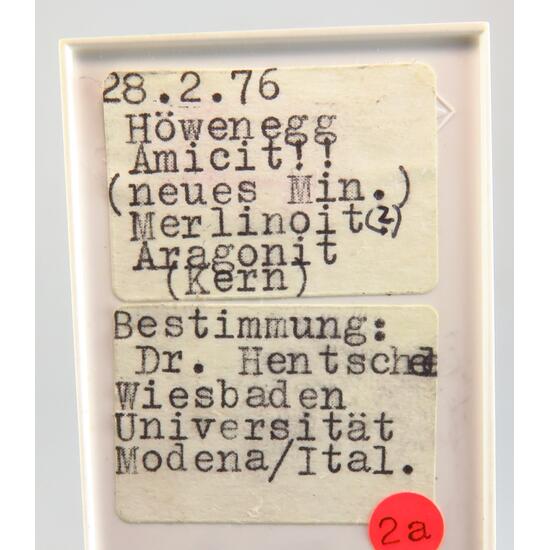 28.2.76
Höwenegg
Amicit!!
(neues Min.)
Merlinoit(2)
Aragonit
(Kern)
Bestimmung:
Dr. Hentschel
Wiesbaden
Universität
Modena/Ital.
2a